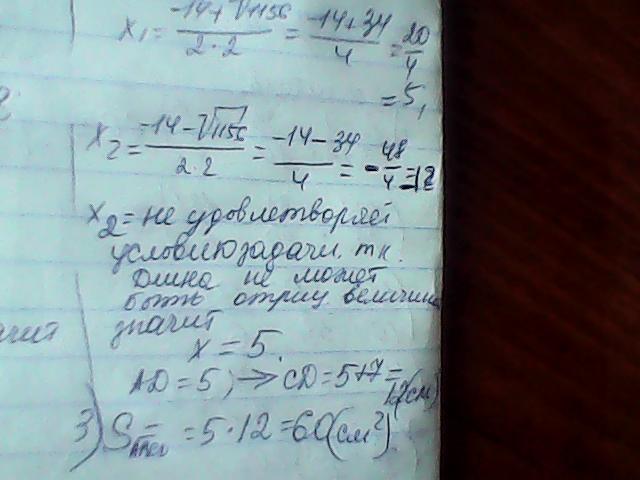 x₁ = (-14+√1156)/(2·2) = (-14+34)/4 = 20/4
= 5,
x₂ = (-14-√1156)/(2·2) = (-14-34)/4 = -48/4 = -12
x₂ = не удовлетворяет
условию задачи, т.к.
длина не может
быть отриц. величина
значит
x = 5.
AD = 5, → CD = 5+7 =
12(см)
3) S = 5·12 = 60(см²)